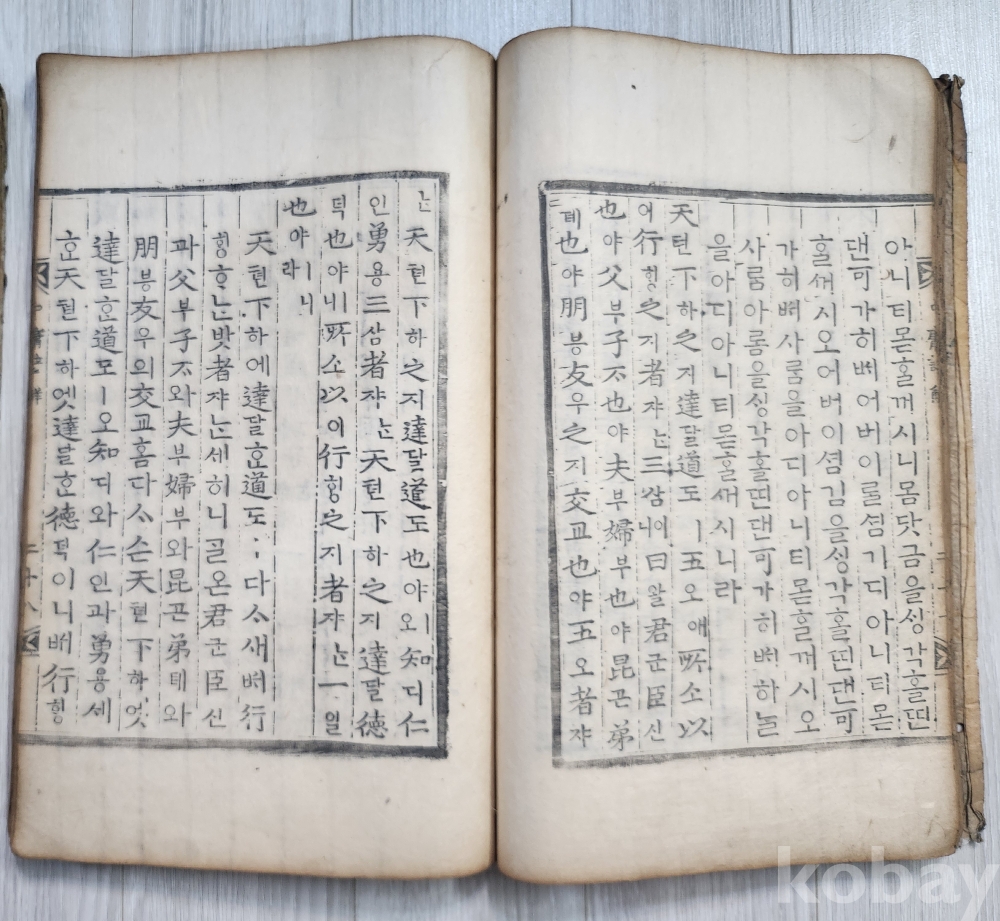 아니티몯홀꺼시니몸닷금을ᄉᆡᆼ각홀띤
댄可가히ᄡᅥ어버이ᄅᆞᆯ셤기디아니티몯
홀새시오어버이셤김을ᄉᆡᆼ각홀띤댄可
가히ᄡᅥ사ᄅᆞᆷ을아디아니티몯홀꺼시오
사ᄅᆞᆷ아롬을ᄉᆡᆼ각홀띤댄可가히ᄡᅥ하ᄂᆞᆯ
을아디아니티몯홀새시니라
天텬下하之지達달道도ㅣ五오애所소以
이行ᄒᆡᆼ之지者쟈ᄂᆞᆫ三삼이니曰왈君군臣신
也야父부子ᄌᆞ也야夫부婦부也야昆곤弟
뎨也야朋븡友우之지交교也야五오者쟈
ᄂᆞᆫ天텬下하之지達달道도也야오知디仁
인勇용三삼者쟈ᄂᆞᆫ天텬下하之지達달德
덕也야ㅣ니所소以이行ᄒᆡᆼ之지者쟈ᄂᆞᆫ一일
也야ㅣ니라
天텬下하에達달ᄒᆞᆫ道도ㅣ다ᄉᆞ새ᄡᅥ行
ᄒᆡᆼᄒᆞᄂᆞᆫ밧者쟈ᄂᆞᆫ세히니ᄀᆞᆯ온君군臣신
과父부子ᄌᆞ와夫부婦부와昆곤弟뎨와
朋븡友우의交교홈다ᄉᆞᆺ손天텬下하엣
達달ᄒᆞᆫ道도ㅣ오知디와仁인과勇용세
ᄒᆞᆫ天텬下하엣達달ᄒᆞᆫ德덕이니ᄡᅥ行ᄒᆡᆼ
二十八
kobay